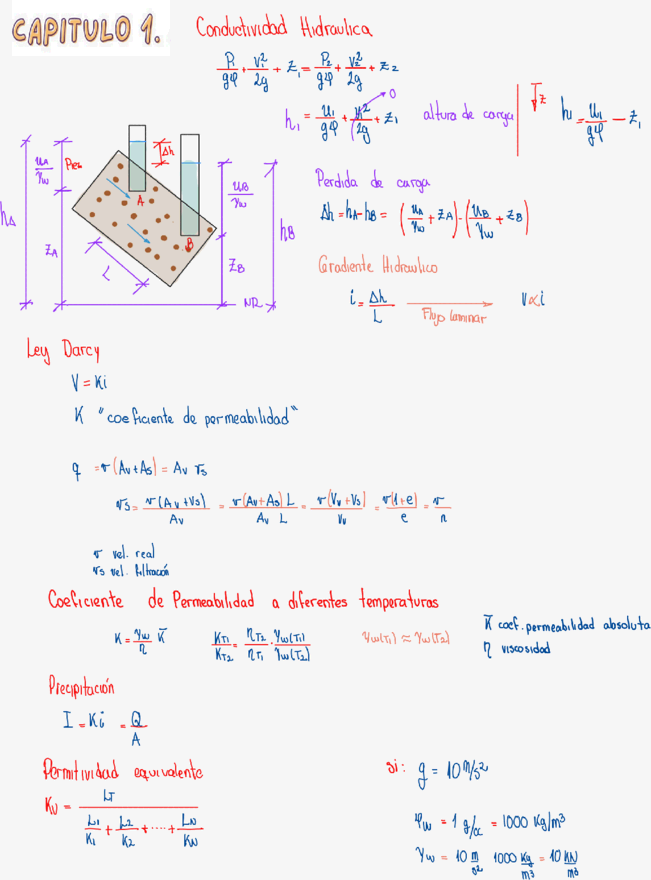 CAPITULO 1.
Conductividad Hidraulica
P₁/gφ + V₁²/2g + Z₁ = P₂/gφ + V₂²/2g + Z₂
h₁ = u₁/gφ + V²/2g + Z₁
0
altura de carga
Z
h₁ = u₁/gφ − Z₁
Δh
uA/γw
Piez
A
uB/γw
hA
B
hB
ZA
L
ZB
NR
Perdida de carga
Δh = hA - hB = (uA/γw + ZA) - (uB/γw + ZB)
Gradiente Hidraulico
i = Δh/L
Flujo laminar
v∝i
Ley Darcy
V = Ki
K "coeficiente de permeabilidad"
q = v(Av+As) = Av vs
vs = v(Av+Vs)/Av = v(Av+As)L/Av L = v(Vv+Vs)/Vv = v(1+e)/e = v/n
v vel. real
vs vel. filtración
Coeficiente de Permeabilidad a diferentes temperaturas
K = γw/η K̄
KT1/KT2 = ηT2/ηT1 · γw(T1)/γw(T2)
γw(T1) ≈ γw(T2)
K̄ coef. permeabilidad absoluta
η viscosidad
Precipitación
I = Ki = Q/A
Permitividad equivalente
Kv = LT/(L1/K1 + L2/K2 + ····· + LN/KN)
si: g = 10 m/s²
φw = 1 g/cc = 1000 Kg/m³
γw = 10 m/s² 1000 Kg/m³ = 10 KN/m³